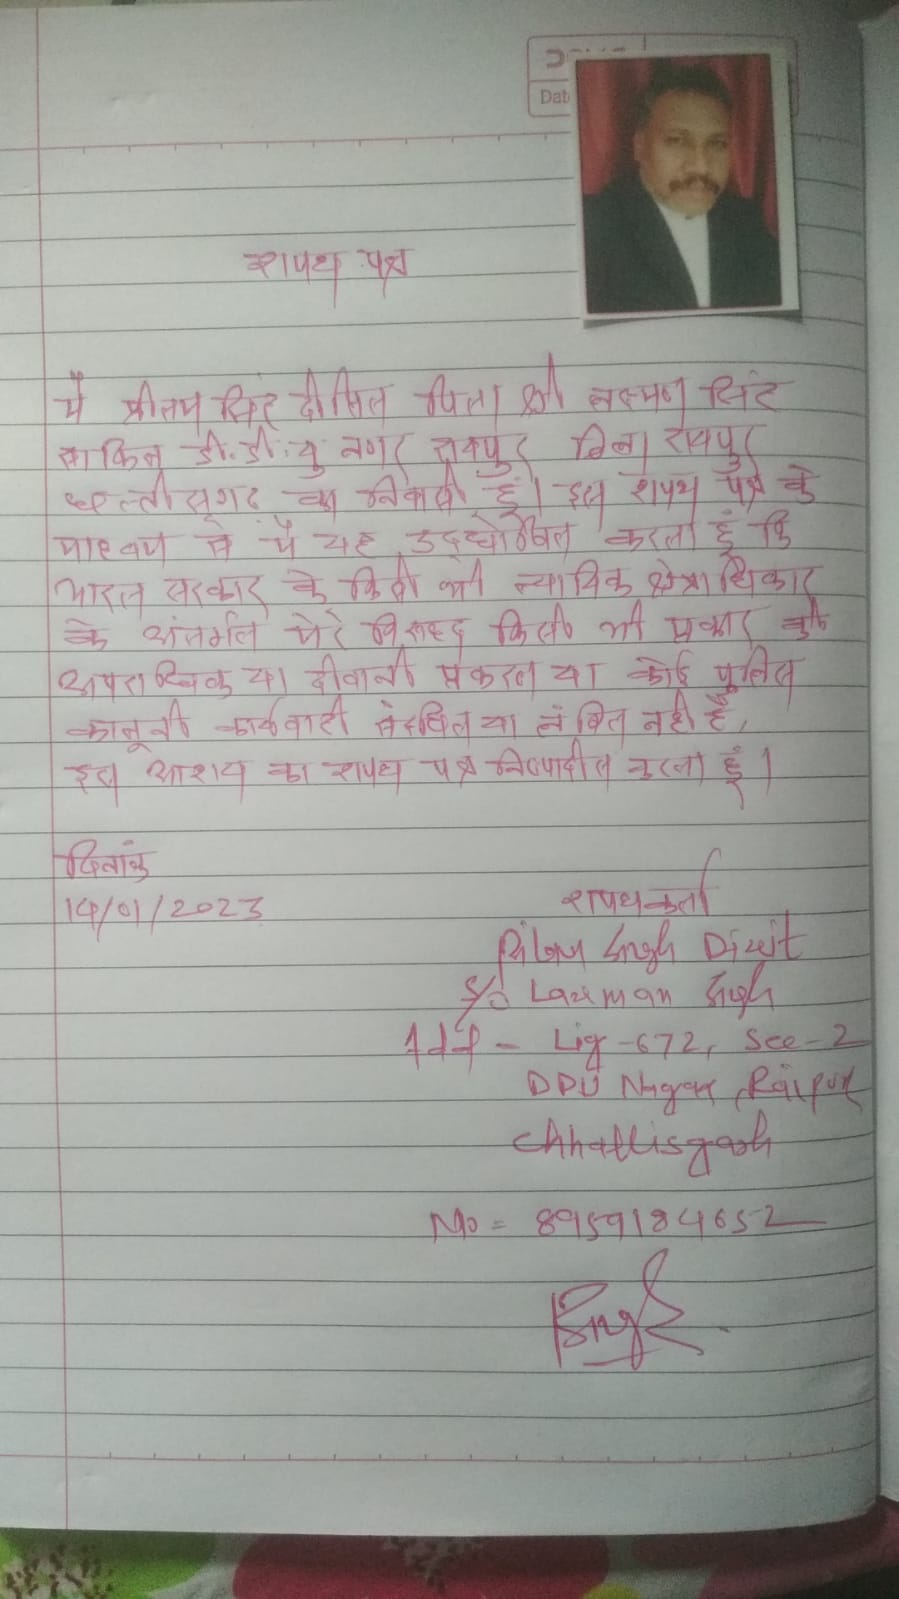 Dat
शपथ पत्र
मैं प्रीतम सिंह दीक्षित पिता श्री लक्ष्मण सिंह
साकिन डी.डी.यु नगर रायपुर जिला रायपुर
छत्तीसगढ का निवासी हूं। इस शपथ पत्र के
माध्यम से मैं यह उद्घोषित करता हूं कि
भारत सरकार के किसी भी न्यायिक क्षेत्राधिकार
के अंतर्गत मेरे विरूद्ध किसी भी प्रकार की
अपराधिक या दीवानी प्रकरण या कोई पुलिस
कानूनी कार्यवाही या लंबित नही है,
इस आशय का शपथ पत्र निष्पादीत करता हूं।
दिनांक
14/01/2023
शपथकर्ता
Singh Dixit
S/o Laxman Singh
Lig-672, Sec-2
DDU Nagar, Raipur
Chhattisgarh
Mo = 8959184652